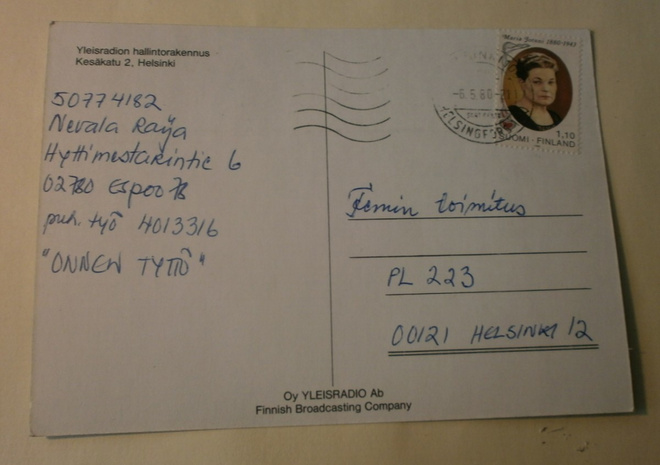 Yleisradion hallintorakennus
Kesäkatu 2, Helsinki
50774182
Nevala Raija
Hyttimestarintie 6
02780 Espoo 78
puh. työ 4013316
"ONNEN TYTTÖ"
Maria Jotuni 1880-1943
-6.5.80-
HELSINGFORS
1.10
SUOMI-FINLAND
Femin toimitus
PL 223
00121 HELSINKI 12
Oy YLEISRADIO Ab
Finnish Broadcasting Company